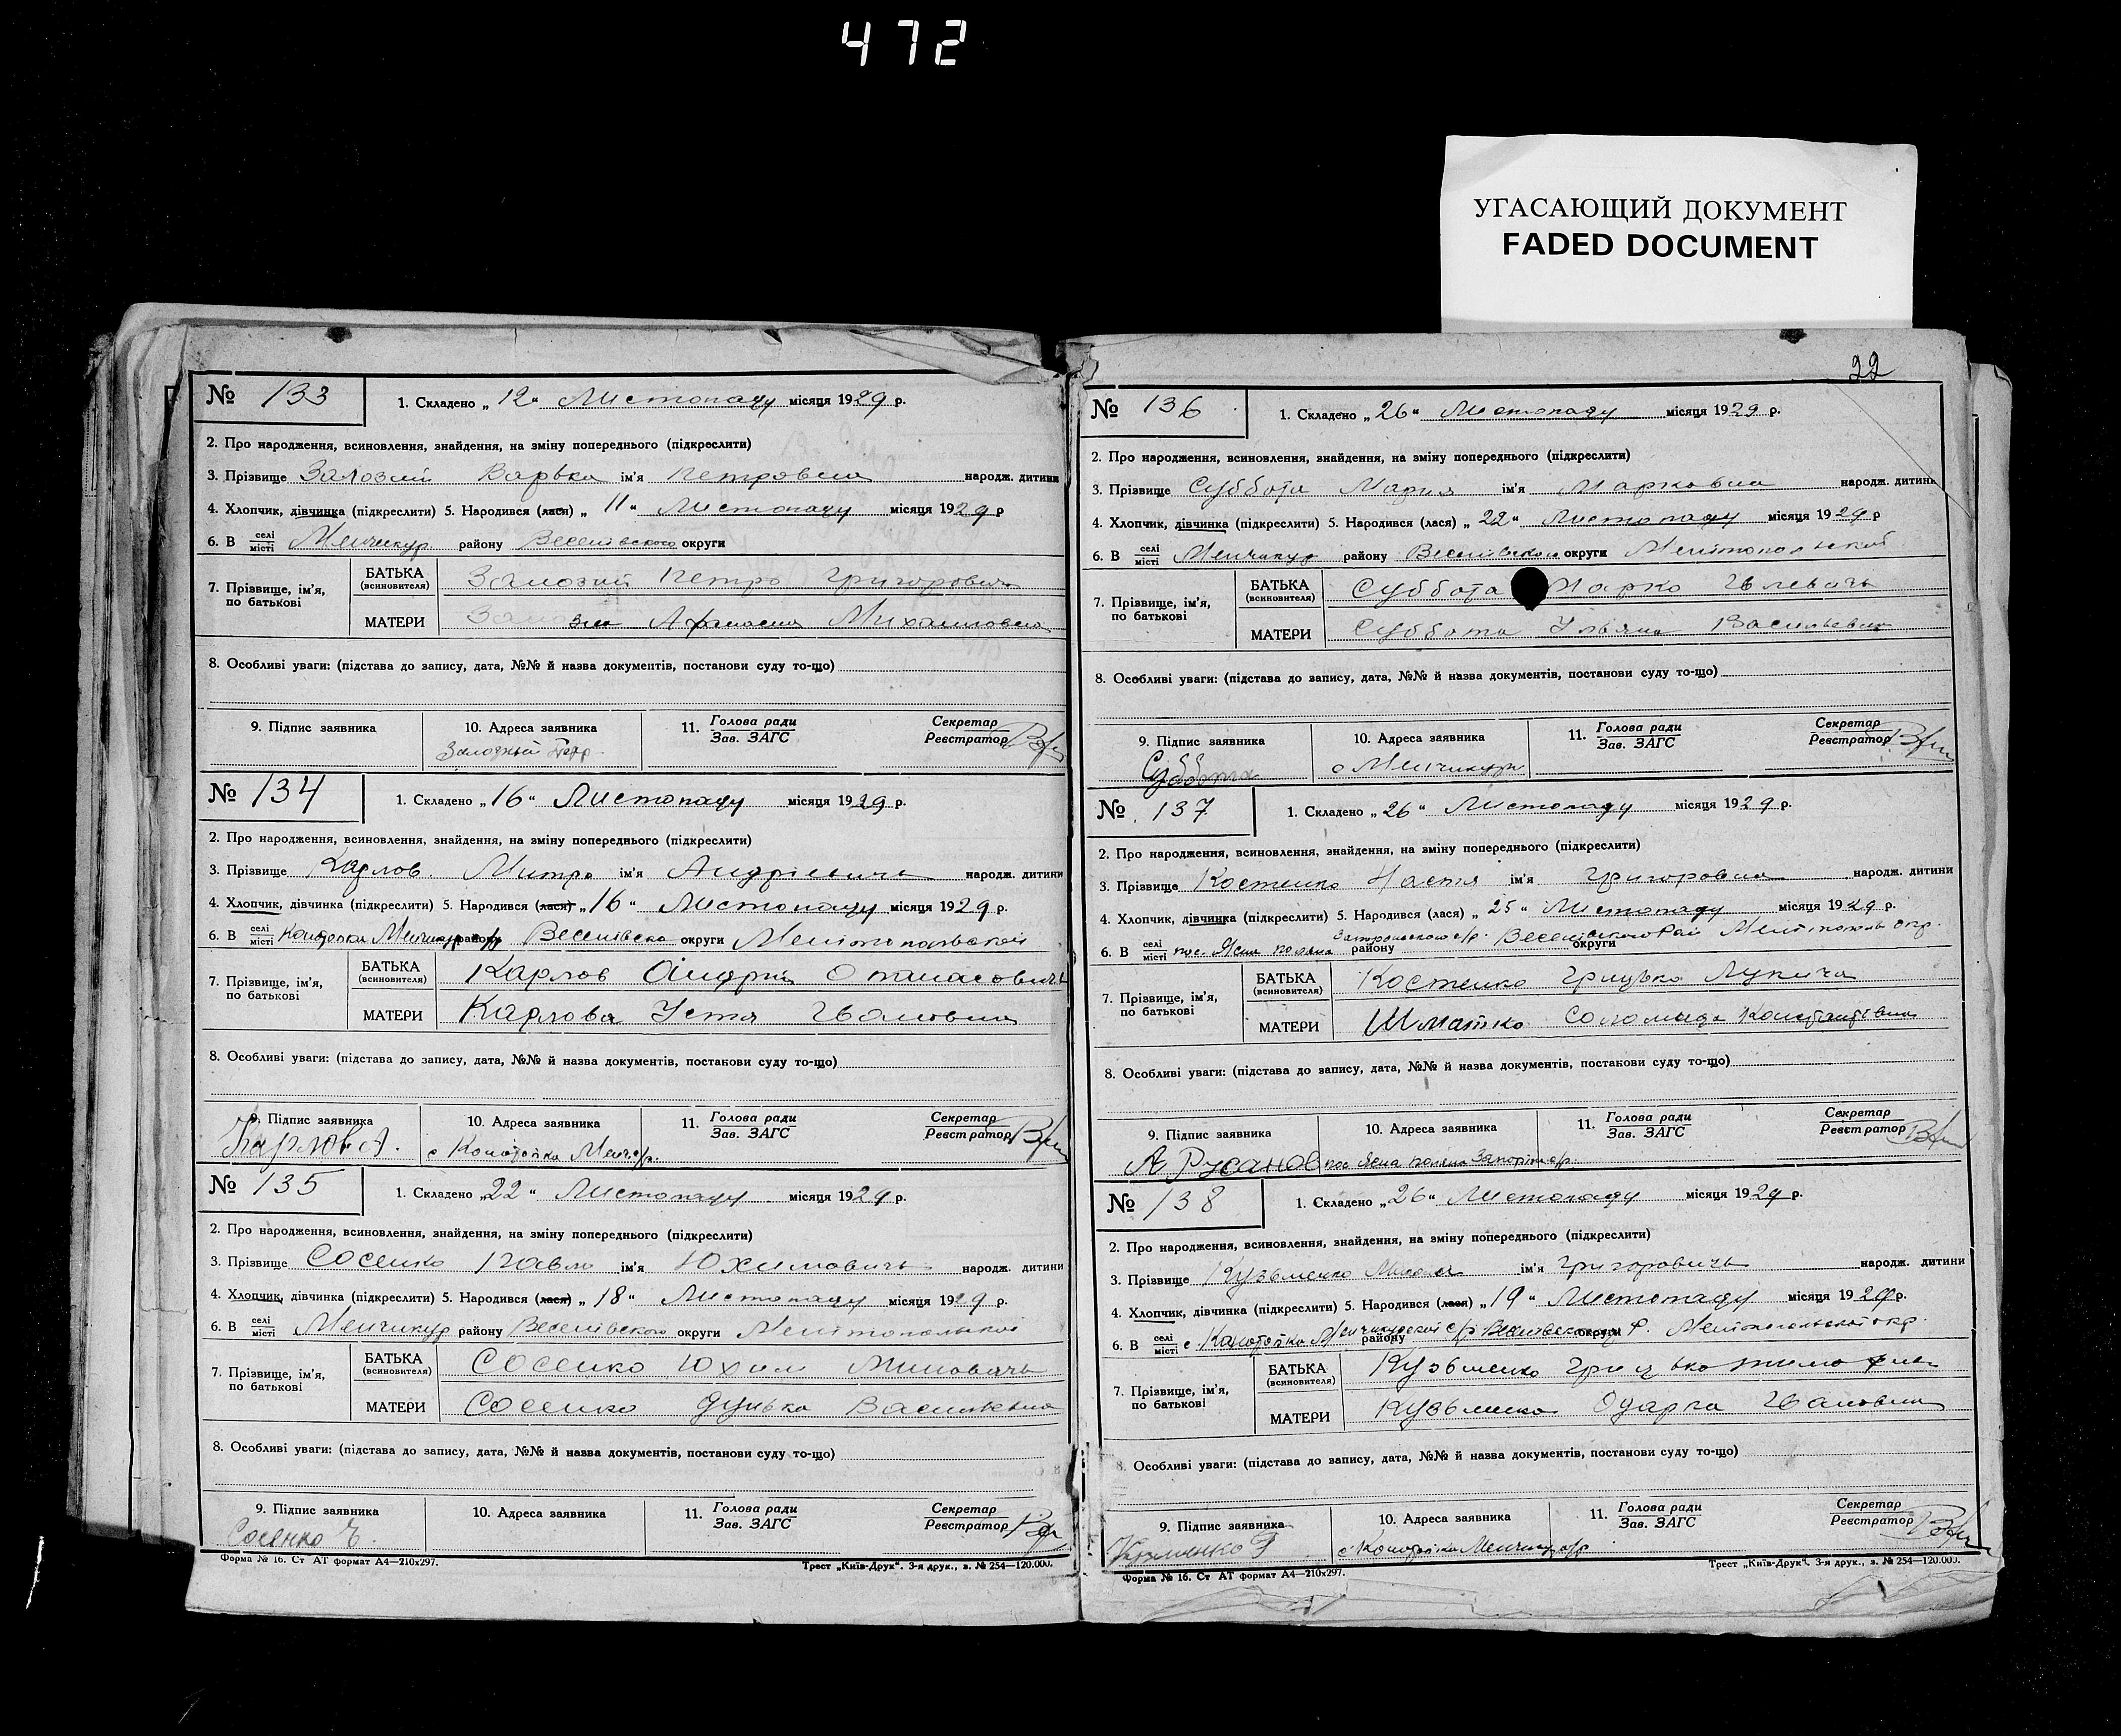 472
УГАСАЮЩИЙ ДОКУМЕНТ
FADED DOCUMENT
№ 133
1. Складено „12“ Листопаду місяця 1929 р.
2. Про народження, всиновлення, знайдення, на зміну попереднього (підкреслити)
3. Прізвище Залозний Варвка ім'я Петровна народж. дитини
4. Хлопчик, дівчинка (підкреслити) 5. Народився (лася) „11“ Листопаду місяця 1929 р
6. В селі місті Менчикур району Веселівского округи
7. Прізвище, ім'я, по батькові
БАТЬКА (всиновителя) Залозний Петро Григоровичь
МАТЕРИ Афанасия Михаиловна
8. Особливі уваги: (підстава до запису, дата, №№ й назва документів, постанови суду то-що)
9. Підпис заявника
10. Адреса заявника Залозный Петр
11. Голова ради Зав. ЗАГС
Секретар Реєстратор
№ 134
1. Складено „16“ Листопаду місяця 1929 р.
2. Про народження, всиновлення, знайдення, на зміну попереднього (підкреслити)
3. Прізвище Карлов. Митро ім'я Андріевичь народж. дитини
4. Хлопчик, дівчинка (підкреслити) 5. Народився (лася) „16“ Листопаду місяця 1929 р.
6. В селі місті Менчикур району Веселівско округи Мелітопольской
7. Прізвище, ім'я, по батькові
БАТЬКА (всиновителя) Карлов Андрій Опанасовичь
МАТЕРИ Карлова Устя Ивановна
8. Особливі уваги: (підстава до запису, дата, №№ й назва документів, постанови суду то-що)
9. Підпис заявника Карлов А.
10. Адреса заявника с Конотопка Менч с/р.
11. Голова ради Зав. ЗАГС
Секретар Реєстратор
№ 135
1. Складено „22“ Листопаду місяця 1929 р.
2. Про народження, всиновлення, знайдення, на зміну попереднього (підкреслити)
3. Прізвище Сосенко Павло ім'я Юхимовичь народж. дитини
4. Хлопчик, дівчинка (підкреслити) 5. Народився (лася) „18“ Листопаду місяця 1929 р.
6. В селі місті Менчикур району Веселівского округи Мелітопольской
7. Прізвище, ім'я, по батькові
БАТЬКА (всиновителя) Сосенко Юхим Миновичь
МАТЕРИ Сосенко Дунька Васильевна
8. Особливі уваги: (підстава до запису, дата, №№ й назва документів, постанови суду то-що)
9. Підпис заявника Сосенко
10. Адреса заявника
11. Голова ради Зав. ЗАГС
Секретар Реєстратор
Форма № 16. Ст АТ формат А4—210х297.
Трест „Київ-Друк“. 3-я друк., з. № 254—120.000.
22
№ 136
1. Складено „26“ Листопаду місяця 1929 р.
2. Про народження, всиновлення, знайдення, на зміну попереднього (підкреслити)
3. Прізвище Суббота Мария ім'я Марковна народж. дитини
4. Хлопчик, дівчинка (підкреслити) 5. Народився (лася) „22“ Листопаду місяця 1929 р
6. В селі місті Менчикур району Веселівском округи Мелітопольской
7. Прізвище, ім'я, по батькові
БАТЬКА (всиновителя) Суббота Марко
МАТЕРИ Суббота Ульяна Васильевна
8. Особливі уваги: (підстава до запису, дата, №№ й назва документів, постанови суду то-що)
9. Підпис заявника Суббота
10. Адреса заявника с Менчикури
11. Голова ради Зав. ЗАГС
Секретар Реєстратор
№ 137
1. Складено „26“ Листопаду місяця 1929 р.
2. Про народження, всиновлення, знайдення, на зміну попереднього (підкреслити)
3. Прізвище Костенко Настя ім'я Григоровна народж. дитини
4. Хлопчик, дівчинка (підкреслити) 5. Народився (лася) „25“ Листопаду місяця 1929 р.
6. В селі місті пос. Ясна поляна с/р. району Веселівского Рай округи Мелітополь окр.
7. Прізвище, ім'я, по батькові
БАТЬКА (всиновителя) Костенко Грицько Лукичь
МАТЕРИ Шматко Соломида Константівна
8. Особливі уваги: (підстава до запису, дата, №№ й назва документів, постанови суду то-що)
9. Підпис заявника А Русанов
10. Адреса заявника пос Ясна поляна с/р.
11. Голова ради Зав. ЗАГС
Секретар Реєстратор
№ 138
1. Складено „26“ Листопаду місяця 1929 р.
2. Про народження, всиновлення, знайдення, на зміну попереднього (підкреслити)
3. Прізвище Кузьменко ім'я Григоровичь народж. дитини
4. Хлопчик, дівчинка (підкреслити) 5. Народився (лася) „19“ Листопаду місяця 1929 р.
6. В селі місті с Конотопка Менчикурской с/р району Веселівского округи Р. Мелітопольской окр.
7. Прізвище, ім'я, по батькові
БАТЬКА (всиновителя) Кузьменко Грицько
МАТЕРИ Кузьменко Одарка Ивановна
8. Особливі уваги: (підстава до запису, дата, №№ й назва документів, постанови суду то-що)
9. Підпис заявника
10. Адреса заявника с Конотопка Менчикур с/р
11. Голова ради Зав. ЗАГС
Секретар Реєстратор
Форма № 16. Ст АТ формат А4—210х297.
Трест „Київ-Друк“. 3-я друк., з. № 254—120.000.